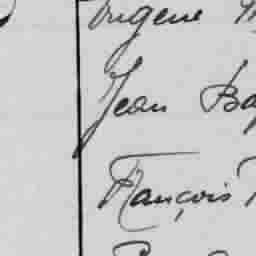 Eugène
Jean Ba
François